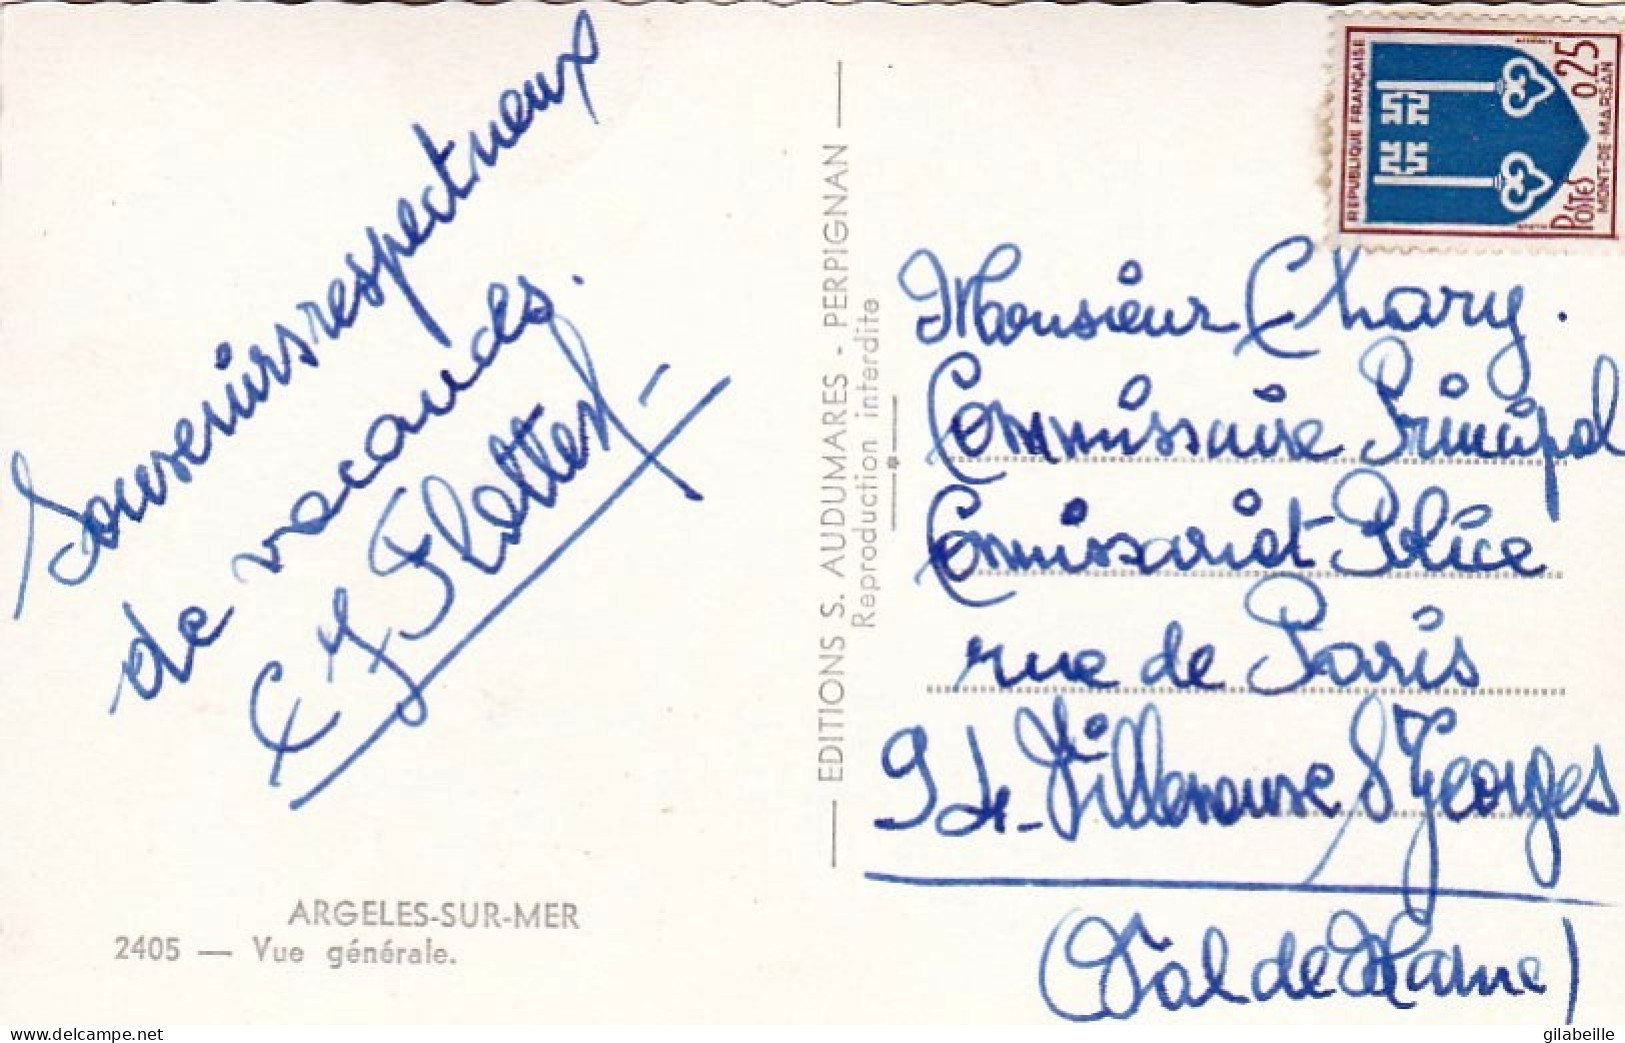 Souvenirs respectueux
de vacances.
ARGELES-SUR-MER
2405 — Vue générale.
EDITIONS S. AUDUMARES - PERPIGNAN
Reproduction interdite
REPUBLIQUE FRANÇAISE
0,25
POSTES
MONT-DE-MARSAN
Monsieur Chary.
Commissaire Principal
Commissariat Police
rue de Paris
94- Villeneuve St Georges
(Val de Marne)
https://www.delcampe.net
gilabeille